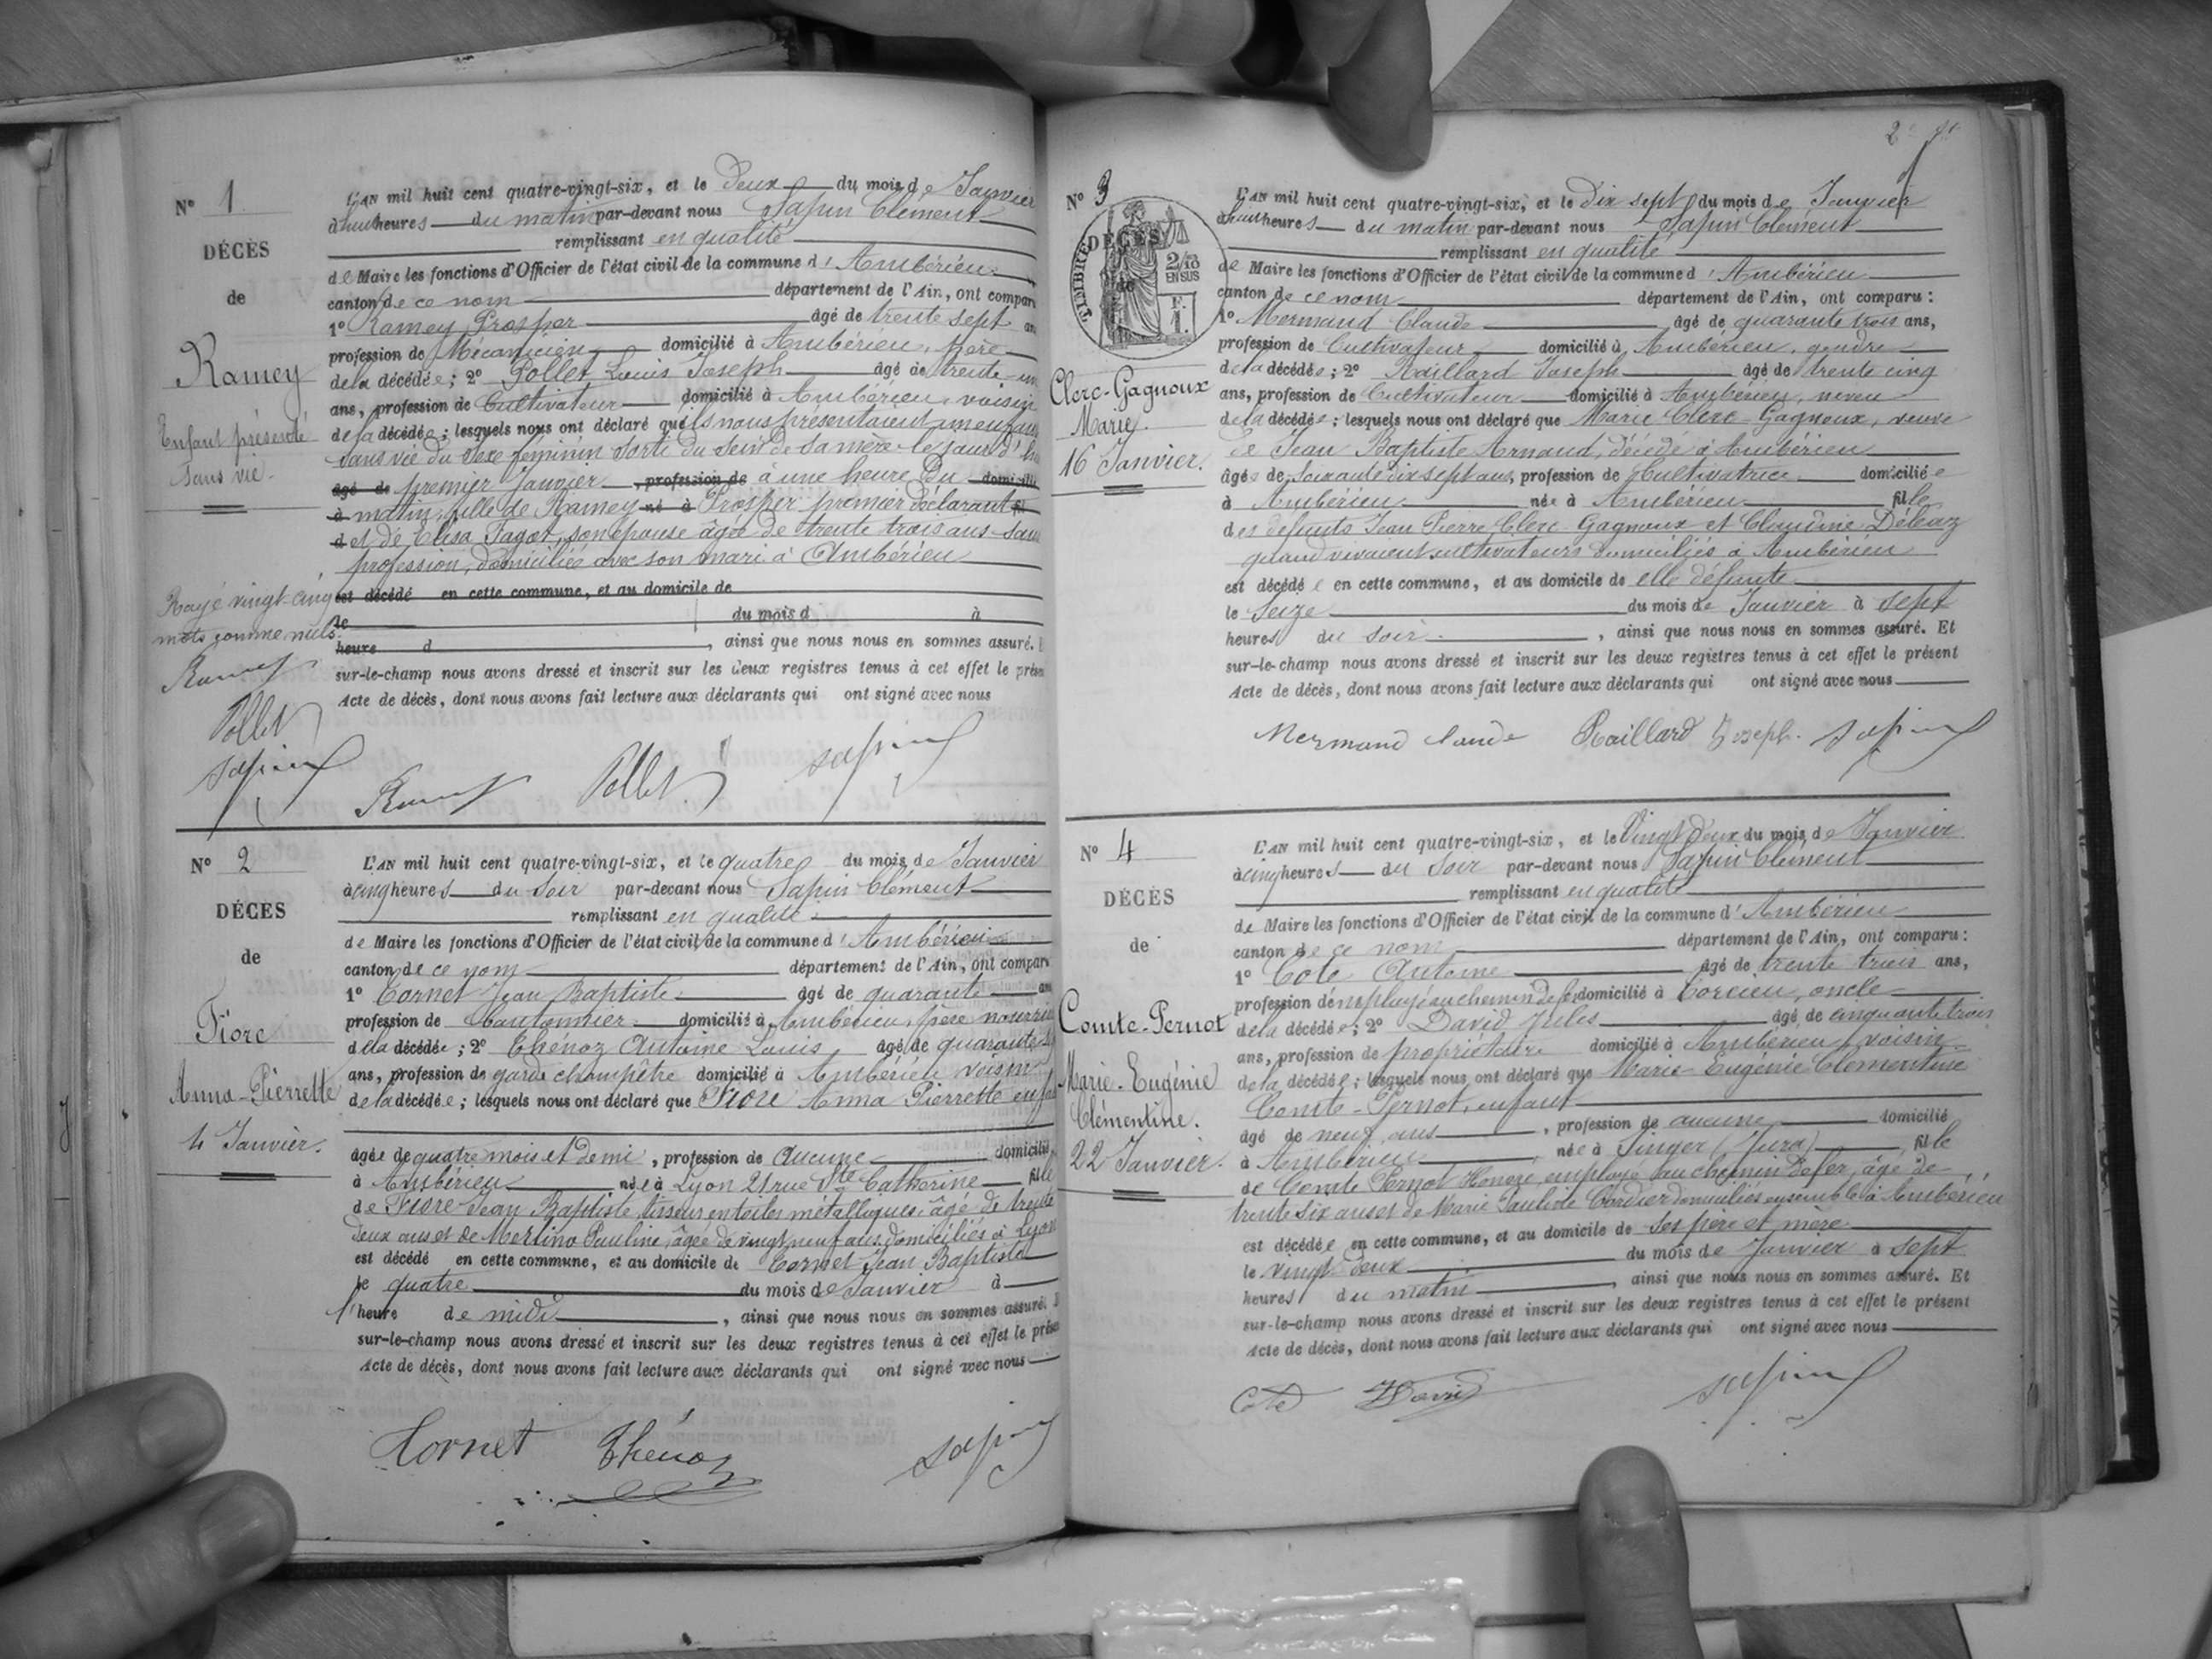 N° 1
DÉCÈS
de
Ramey
Enfant présenté
sans vie.
Rayé vingt-cinq
mots comme nuls.
Ramey
Pollet
Sapin
L'AN mil huit cent quatre-vingt-six, et le deux du mois de Janvier
à huit heures du matin par-devant nous Sapin Clément
remplissant en qualité
de Maire les fonctions d'Officier de l'état civil de la commune d'Ambérieu
canton de ce nom département de l'Ain, ont comparu
1° Ramey Prosper âgé de trente sept ans
profession de Mécanicien domicilié à Ambérieu, père
de la décédée ; 2° Pollet Louis Joseph âgé de trente un
ans, profession de Cultivateur domicilié à Ambérieu, voisin
de la décédée ; lesquels nous ont déclaré qu'ils nous présentaient un enfant
sans vie du sexe féminin sorti du sein de sa mère le jour d'hier
âgé de premier Janvier profession de à une heure du domicilié
à matin, fille de Ramey né à Prosper premier déclarant fil
d et de Elisa Fagot, son épouse âgée de trente trois ans sans
profession, domiciliée avec son mari à Ambérieu
est décédé en cette commune, et au domicile de
le du mois d à
heure d , ainsi que nous nous en sommes assuré. E
sur-le-champ nous avons dressé et inscrit sur les deux registres tenus à cet effet le présen
Acte de décès, dont nous avons fait lecture aux déclarants qui ont signé avec nous
Ramey Pollet Sapin
N° 2
DÉCES
de
Fiore
Anna-Pierrette
4 Janvier.
L'AN mil huit cent quatre-vingt-six, et le quatre du mois de Janvier
à cinq heures du soir par-devant nous Sapin Clément
remplissant en qualité
de Maire les fonctions d'Officier de l'état civil de la commune d'Ambérieu
canton de ce nom département de l'Ain, ont comparu
1° Cornet Jean Baptiste âgé de quarante ans
profession de Cantonnier domicilié à Ambérieu, père nourricier
de la décédée ; 2° Thénoz Antoine Louis âgé de quarante
ans, profession de garde champêtre domicilié à Ambérieu voisin
de la décédée ; lesquels nous ont déclaré que Fiore Anna Pierrette enfant
âgée de quatre mois et demi , profession de aucune domicilié
à Ambérieu née à Lyon 21 rue Ste Catherine fille
de Fiore Jean Baptiste tisseur en toiles métalliques, âgé de trente
deux ans et de Merlino Pauline, âgée de vingt neuf ans domiciliés à Lyon
est décédé en cette commune, et au domicile de Cornet Jean Baptiste
le quatre du mois de Janvier à
l'heure de midi , ainsi que nous nous en sommes assuré. E
sur-le-champ nous avons dressé et inscrit sur les deux registres tenus à cet effet le présen
Acte de décès, dont nous avons fait lecture aux déclarants qui ont signé avec nous
Cornet Thénoz Sapin
N° 3
DÉCÈS
TIMBRE
2/10
EN SUS
F.
1.
de
Clerc-Gagnoux
Marie.
16 Janvier.
L'AN mil huit cent quatre-vingt-six, et le Dix sept du mois de Janvier
à huit heures du matin par-devant nous Sapin Clément
remplissant en qualité
de Maire les fonctions d'Officier de l'état civil de la commune d'Ambérieu
canton de ce nom département de l'Ain, ont comparu :
1° Mermand Claude âgé de quarante trois ans,
profession de Cultivateur domicilié à Ambérieu, gendre
de la décédée ; 2° Raillard Joseph âgé de trente cinq
ans, profession de Cultivateur domicilié à Ambérieu, neveu
de la décédée ; lesquels nous ont déclaré que Marie Clerc-Gagnoux, veuve
de Jean Baptiste Arnaud, décédé à Ambérieu
âgée de soixante dix sept ans, profession de Cultivatrice domiciliée
à Ambérieu née à Ambérieu fille
des défunts Jean Pierre Clerc-Gagnoux et Claudine
quand vivaient cultivateurs domiciliés à Ambérieu
est décédée en cette commune, et au domicile de elle défunte
le Seize du mois de Janvier à sept
heures du soir , ainsi que nous nous en sommes assuré. Et
sur-le-champ nous avons dressé et inscrit sur les deux registres tenus à cet effet le présent
Acte de décès, dont nous avons fait lecture aux déclarants qui ont signé avec nous
Mermand Claude Raillard Joseph. Sapin
N° 4
DÉCÈS
de
Comte-Pernot
Marie-Eugénie
Clémentine.
22 Janvier.
L'AN mil huit cent quatre-vingt-six, et le Vingt deux du mois de Janvier
à cinq heures du soir par-devant nous Sapin Clément
remplissant en qualité
de Maire les fonctions d'Officier de l'état civil de la commune d'Ambérieu
canton de ce nom département de l'Ain, ont comparu :
1° Cote Antoine âgé de trente trois ans,
profession d'employé au chemin de fer domicilié à Corcieu, oncle
de la décédée ; 2° David Jules âgé de cinquante trois
ans, profession de propriétaire domicilié à Ambérieu, voisin
de la décédée ; lesquels nous ont déclaré que Marie-Eugénie Clémentine
Comte-Pernot, enfant
âgé de neuf ans , profession de aucune domicilié
à Ambérieu née à Singer (Jura) fille
de Comte Pernot Honoré employé au chemin de fer, âgé de
trente six ans et de Marie Pauline Cordier domiciliés ensemble à Ambérieu
est décédée en cette commune, et au domicile de ses père et mère
le vingt deux du mois de Janvier à sept
heures du matin , ainsi que nous nous en sommes assuré. Et
sur-le-champ nous avons dressé et inscrit sur les deux registres tenus à cet effet le présent
Acte de décès, dont nous avons fait lecture aux déclarants qui ont signé avec nous
Cote David Sapin